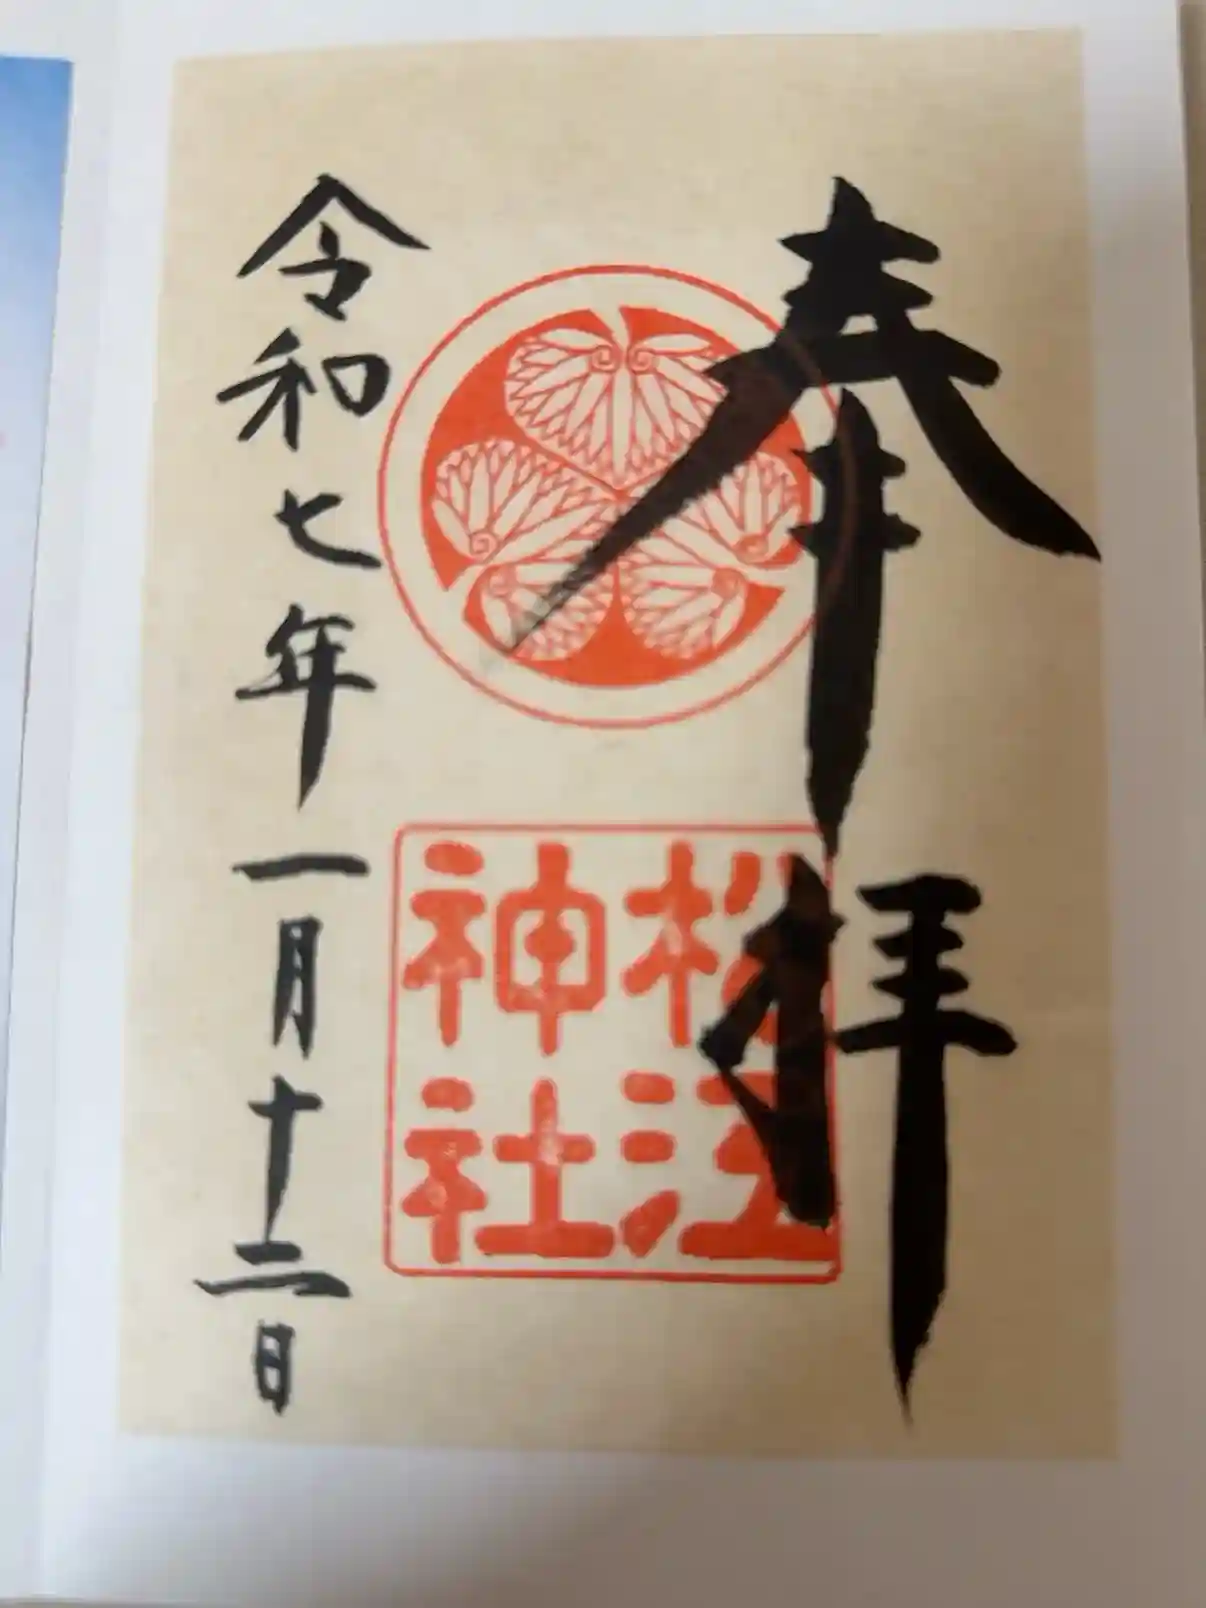 奉拝
松江
神社
令和七年一月十二日